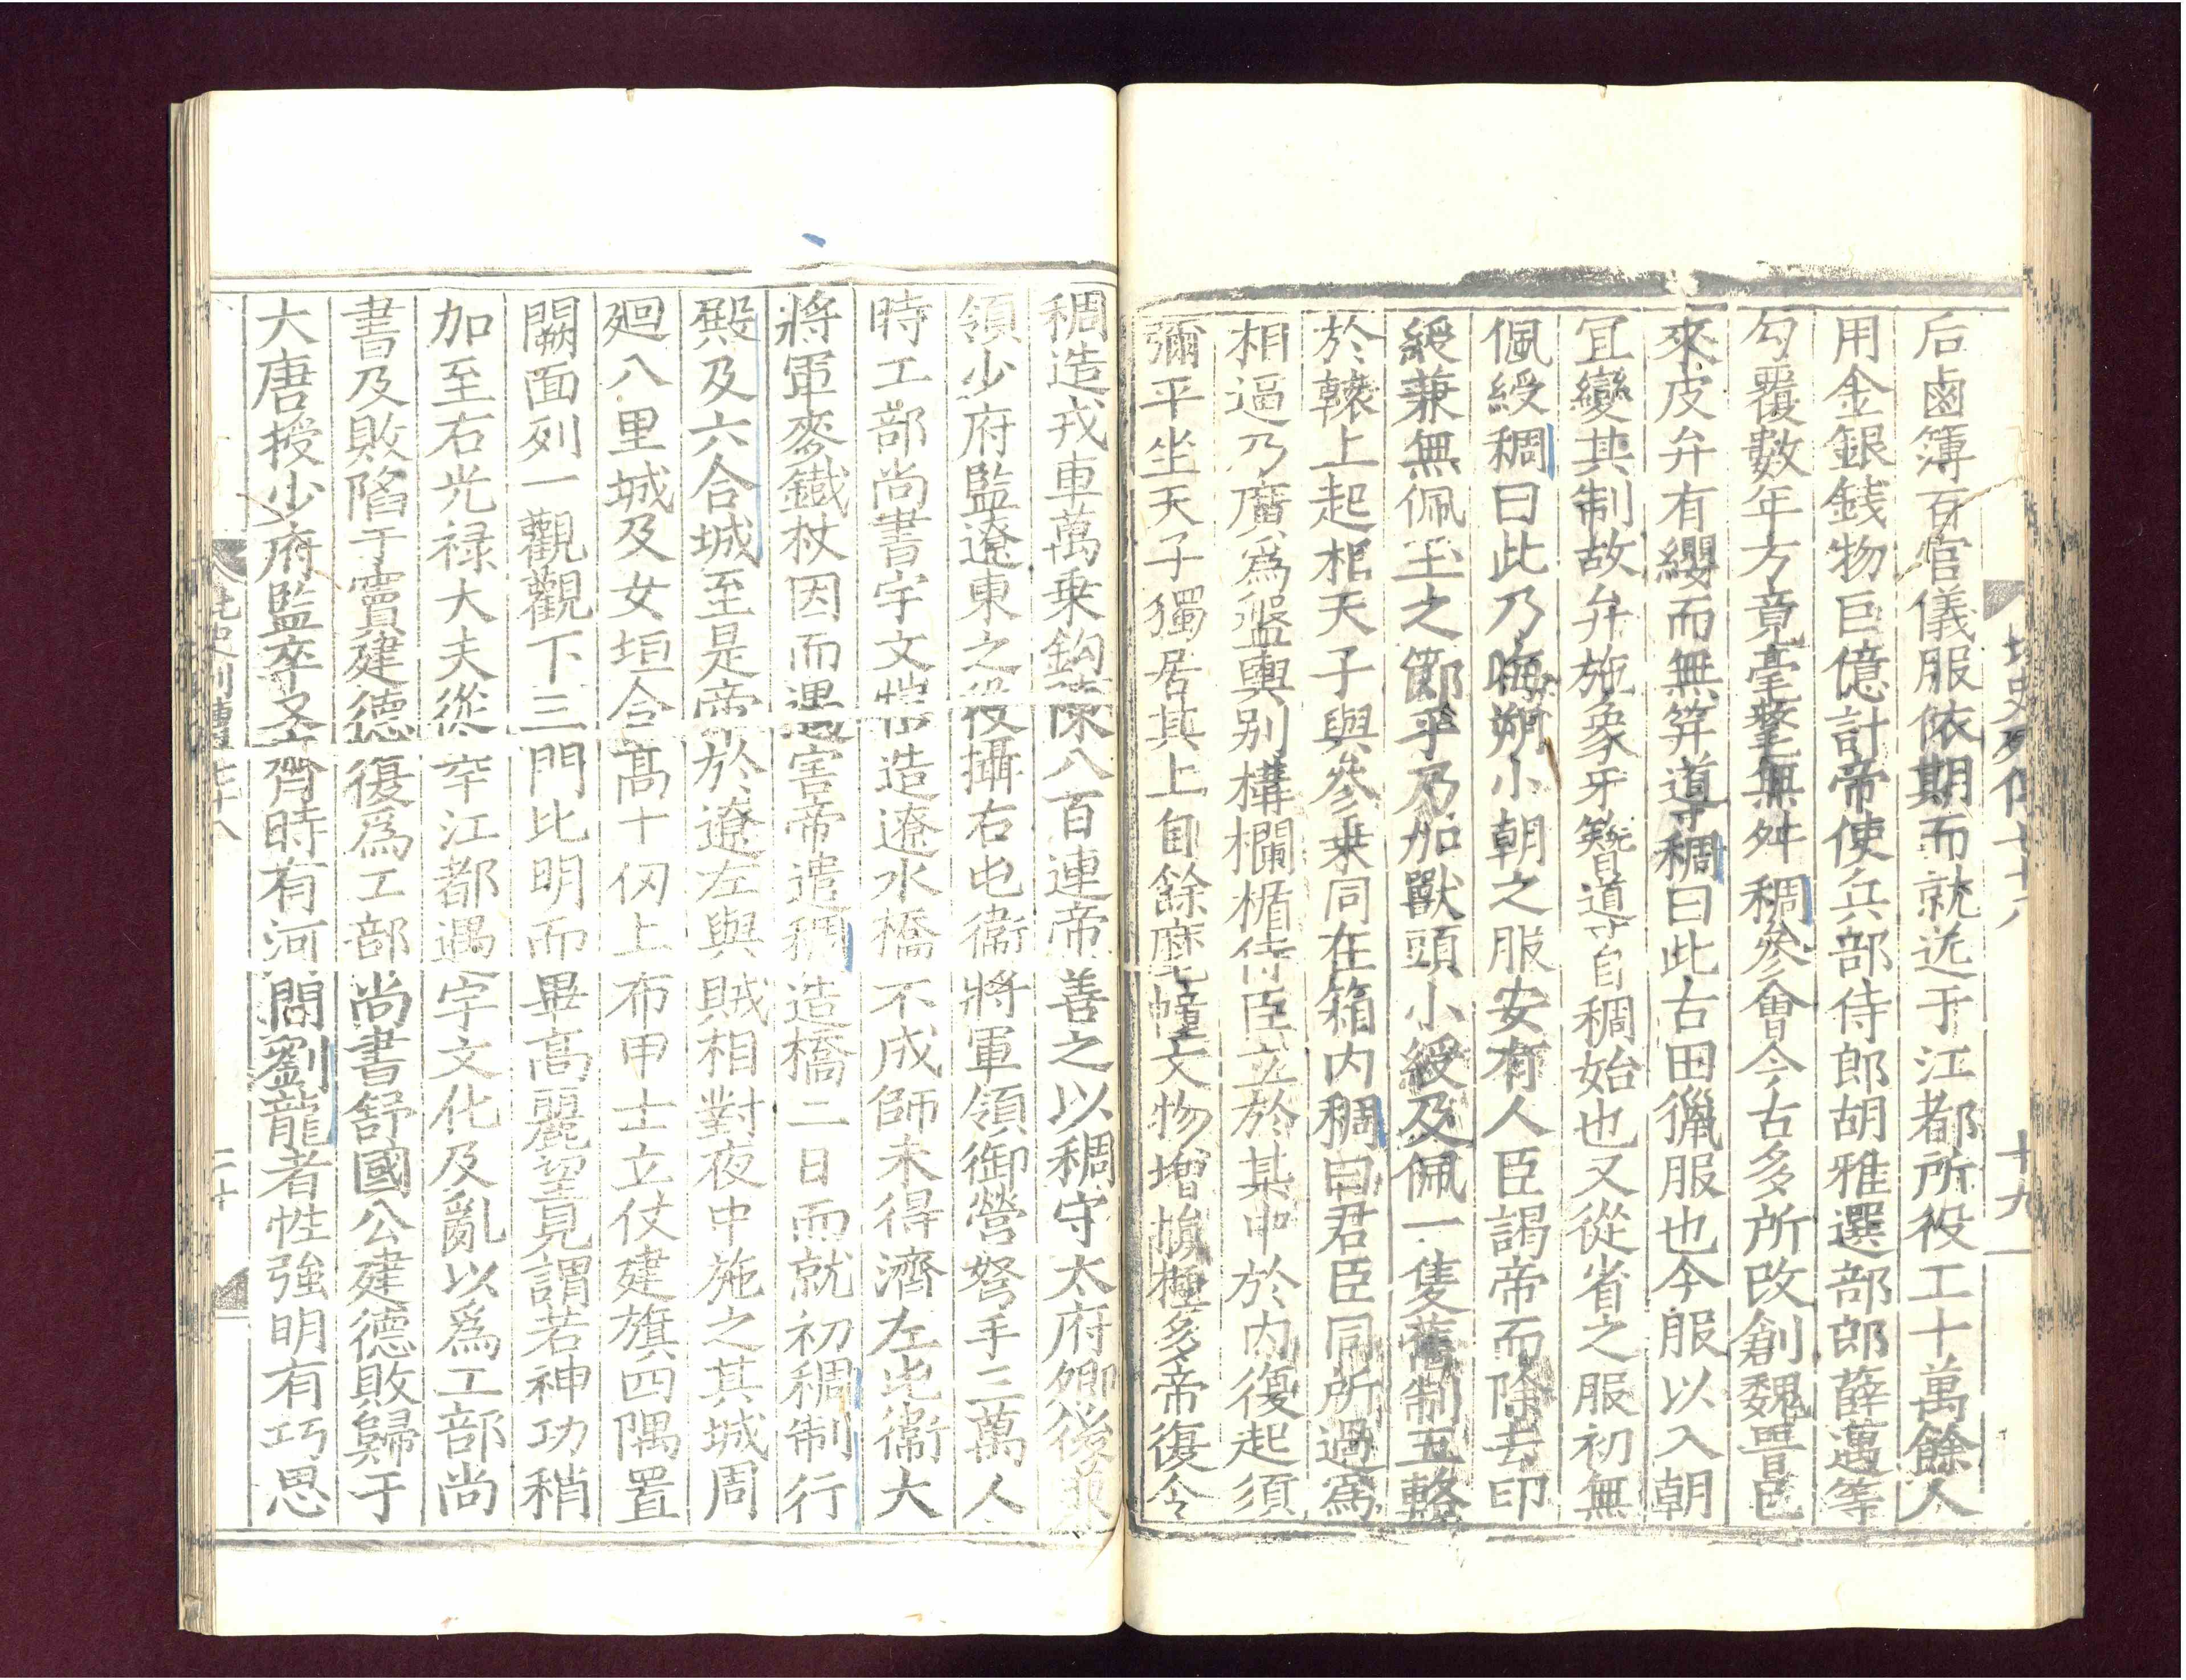 北史列傳七十八　十九
后鹵簿百官儀服依期而就送于江都所役工十萬餘人
用金銀錢物巨億計帝使兵部侍郎胡雅選部郎薛邁等
勾覆數年方竟毫釐無舛稠參會今古多所改創魏晉已
來皮弁有纓而無笄導稠曰此古田獵服也今服以入朝
宜變其制故弁施象牙簪導自稠始也又從省之服初無
佩綬稠曰此乃晦朔小朝之服安有人臣謁帝而除去印
綬兼無佩玉之節乎乃加獸頭小綬及佩一隻舊制五輅
於轅上起棺天子與參乗同在箱内稠曰君臣同所過爲
相逼乃廣爲盤輿别構欄楯侍臣立於其中於内復起須
彌平坐天子獨居其上自餘麾幢文物增損極多帝復令
稠造戎車萬乗鈎陳八百連帝善之以稠守太府卿後兼
領少府監遼東之役攝右屯衞將軍領御營弩手三萬人
時工部尚書宇文愷造遼水橋不成師未得濟左屯衞大
將軍麥鐵杖因而遇害帝遣稠造橋二日而就初稠制行
殿及六合城至是帝於遼左與賊相對夜中施之其城周
廻八里城及女垣合高十仞上布甲士立仗建旗四隅置
闕面列一觀觀下三門比明而畢高麗望見謂若神功稍
加至右光禄大夫從幸江都遇宇文化及亂以爲工部尚
書及敗陷于竇建德復爲工部尚書舒國公建德敗歸于
大唐授少府監卒 齊時有河間劉龍者性強明有巧思
北史列傳七十八　二十